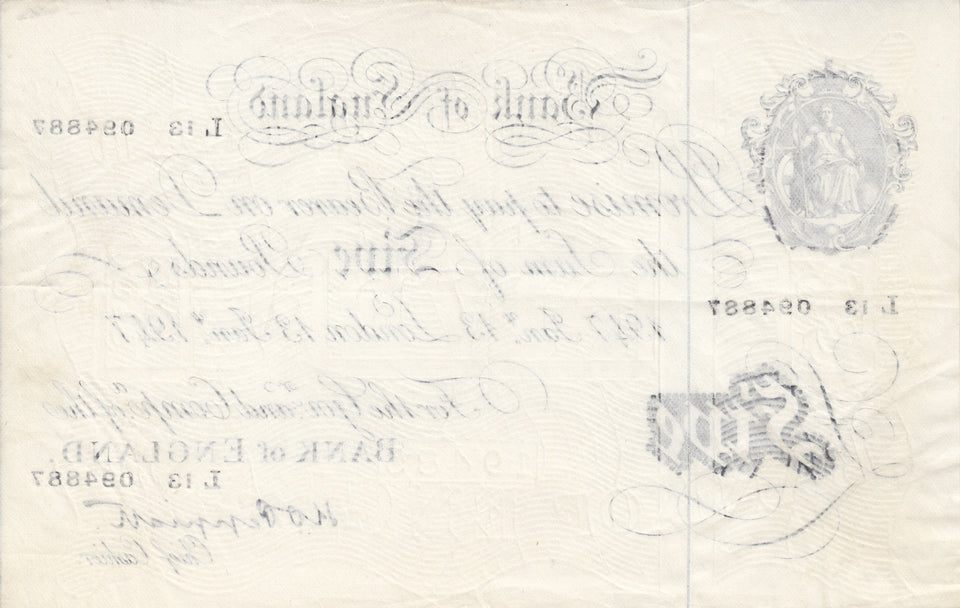 Bank of England
L 13 094887
Promise to pay the Bearer on Demand
the Sum of Five Pounds
L 13 094887
1947 Jan.y 13 London 13 Jan.y 1947
For the Gov.r and Comp.a of the
Five
BANK of ENGLAND.
L 13 094887
Chief Cashier